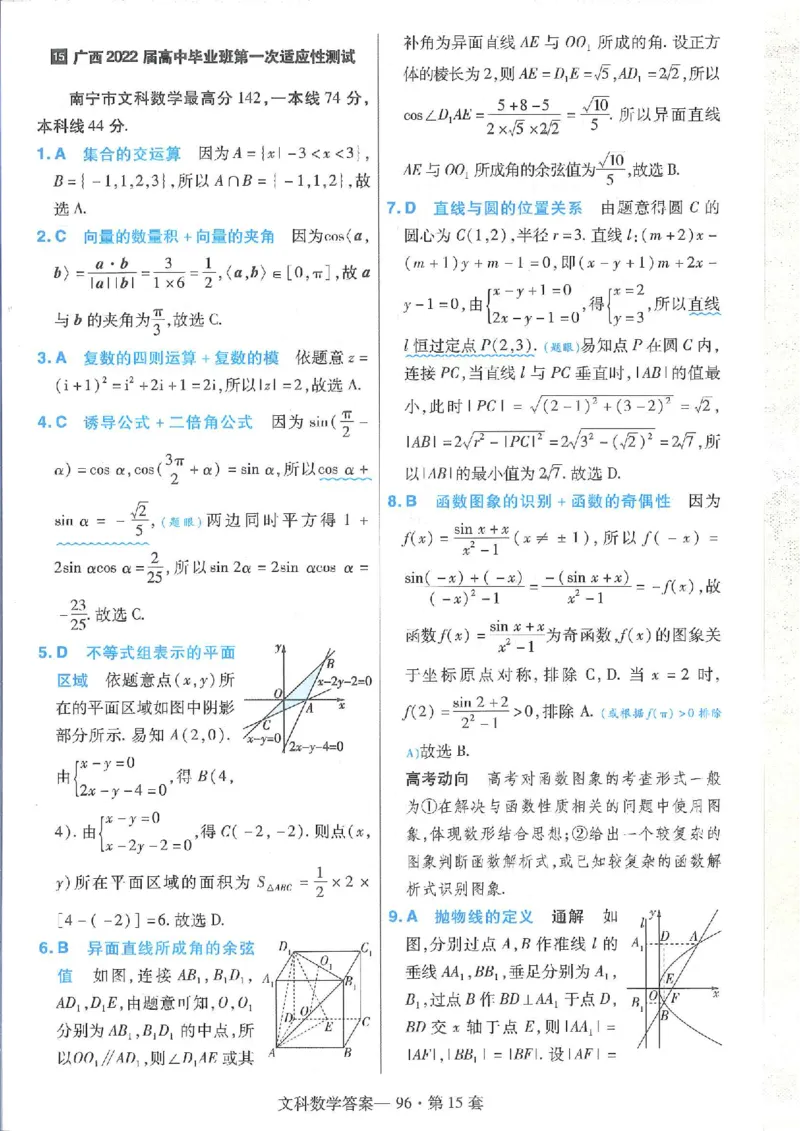 15 广西2022届高中毕业班第一次适应性测试
南宁市文科数学最高分142,一本线74分,
本科线44分.
1.A 集合的交运算 因为A={x|-3<x<3},
B={-1,1,2,3},所以A∩B={-1,1,2},故
选A.
2.C 向量的数量积+向量的夹角 因为cos⟨a,
b⟩=a·b/|a||b|=3/1×6=1/2,⟨a,b⟩∈[0,π],故a
与b的夹角为π/3,故选C.
3.A 复数的四则运算+复数的模 依题意z=
(i+1)²=i²+2i+1=2i,所以|z|=2,故选A.
4.C 诱导公式+二倍角公式 因为sin(π/2-
α)=cos α,cos(3π/2+α)=sin α,所以cos α+
sin α=-√2/5,(题眼)两边同时平方得1+
2sin αcos α=2/25,所以sin 2α=2sin αcos α=
-23/25.故选C.
5.D 不等式组表示的平面
区域 依题意点(x,y)所
在的平面区域如图中阴影
部分所示.易知A(2,0).
由{x-y=0
2x-y-4=0,得B(4,
4).由{x-y=0
x-2y-2=0,得C(-2,-2).则点(x,
y)所在平面区域的面积为S△ABC=1/2×2×
[4-(-2)]=6.故选D.
y
B
x-2y-2=0
O
A
x
C
x-y=0
2x-y-4=0
6.B 异面直线所成角的余弦
值 如图,连接AB₁,B₁D₁,
AD₁,D₁E,由题意可知,O,O₁
分别为AB₁,B₁D₁的中点,所
以OO₁∥AD₁,则∠D₁AE或其
D₁
C₁
O₁
A₁
B₁
D
O
E
C
A
B
补角为异面直线AE与OO₁所成的角.设正方
体的棱长为2,则AE=D₁E=√5,AD₁=2√2,所以
cos∠D₁AE=5+8-5/2×√5×2√2=√10/5.所以异面直线
AE与OO₁所成角的余弦值为√10/5,故选B.
7.D 直线与圆的位置关系 由题意得圆C的
圆心为C(1,2),半径r=3.直线l:(m+2)x-
(m+1)y+m-1=0,即(x-y+1)m+2x-
y-1=0,由{x-y+1=0
2x-y-1=0,得{x=2
y=3,所以直线
l恒过定点P(2,3).(题眼)易知点P在圆C内,
连接PC,当直线l与PC垂直时,|AB|的值最
小,此时|PC|=√(2-1)²+(3-2)²=√2,
|AB|=2√r²-|PC|²=2√3²-(√2)²=2√7,所
以|AB|的最小值为2√7.故选D.
8.B 函数图象的识别+函数的奇偶性 因为
f(x)=sin x+x/x²-1(x≠±1),所以f(-x)=
sin(-x)+(-x)/(-x)²-1=-(sin x+x)/x²-1=-f(x),故
函数f(x)=sin x+x/x²-1为奇函数,f(x)的图象关
于坐标原点对称,排除C,D.当x=2时,
f(2)=sin 2+2/2²-1>0,排除A.(或根据f(π)>0排除
A)故选B.
高考动向 高考对函数图象的考查形式一般
为①在解决与函数性质相关的问题中使用图
象,体现数形结合思想;②给出一个较复杂的
图象判断函数解析式,或已知较复杂的函数解
析式识别图象.
9.A 抛物线的定义 通解 如
图,分别过点A,B作准线l的
垂线AA₁,BB₁,垂足分别为A₁,
B₁,过点B作BD⊥AA₁于点D,
BD交x轴于点E,则|AA₁|=
|AF|,|BB₁|=|BF|.设|AF|=
l
y
A₁
D
A
E
O
F
x
B₁
B
文科数学答案—96·第15套